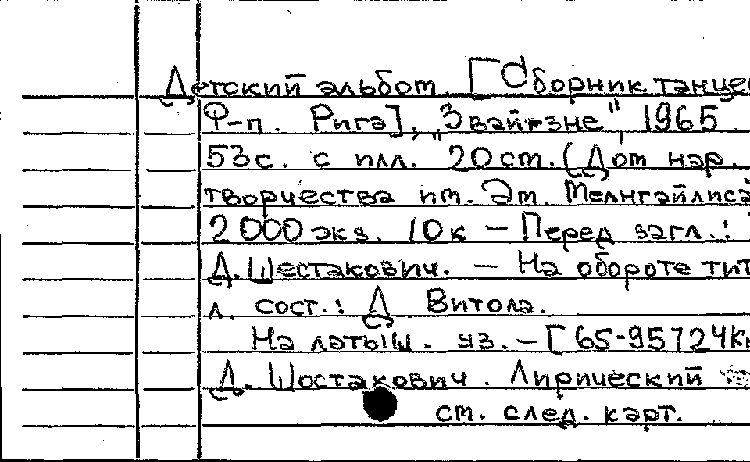 Детский альбом. [Сборник танцев
Ф-п. Рига], "Звайгзне", 1965.
53с. с илл. 20 см. (Дом нар.
творчества им. Эм. Мелнгайлиса
2 000 экз. 10 к — Перед загл.:
Д. Шестакович. — На обороте тит
л. сост.: Д Витола.
На латыш. яз. — [65-95724кн
Д. Шостакович. Лирический
см. след. карт.